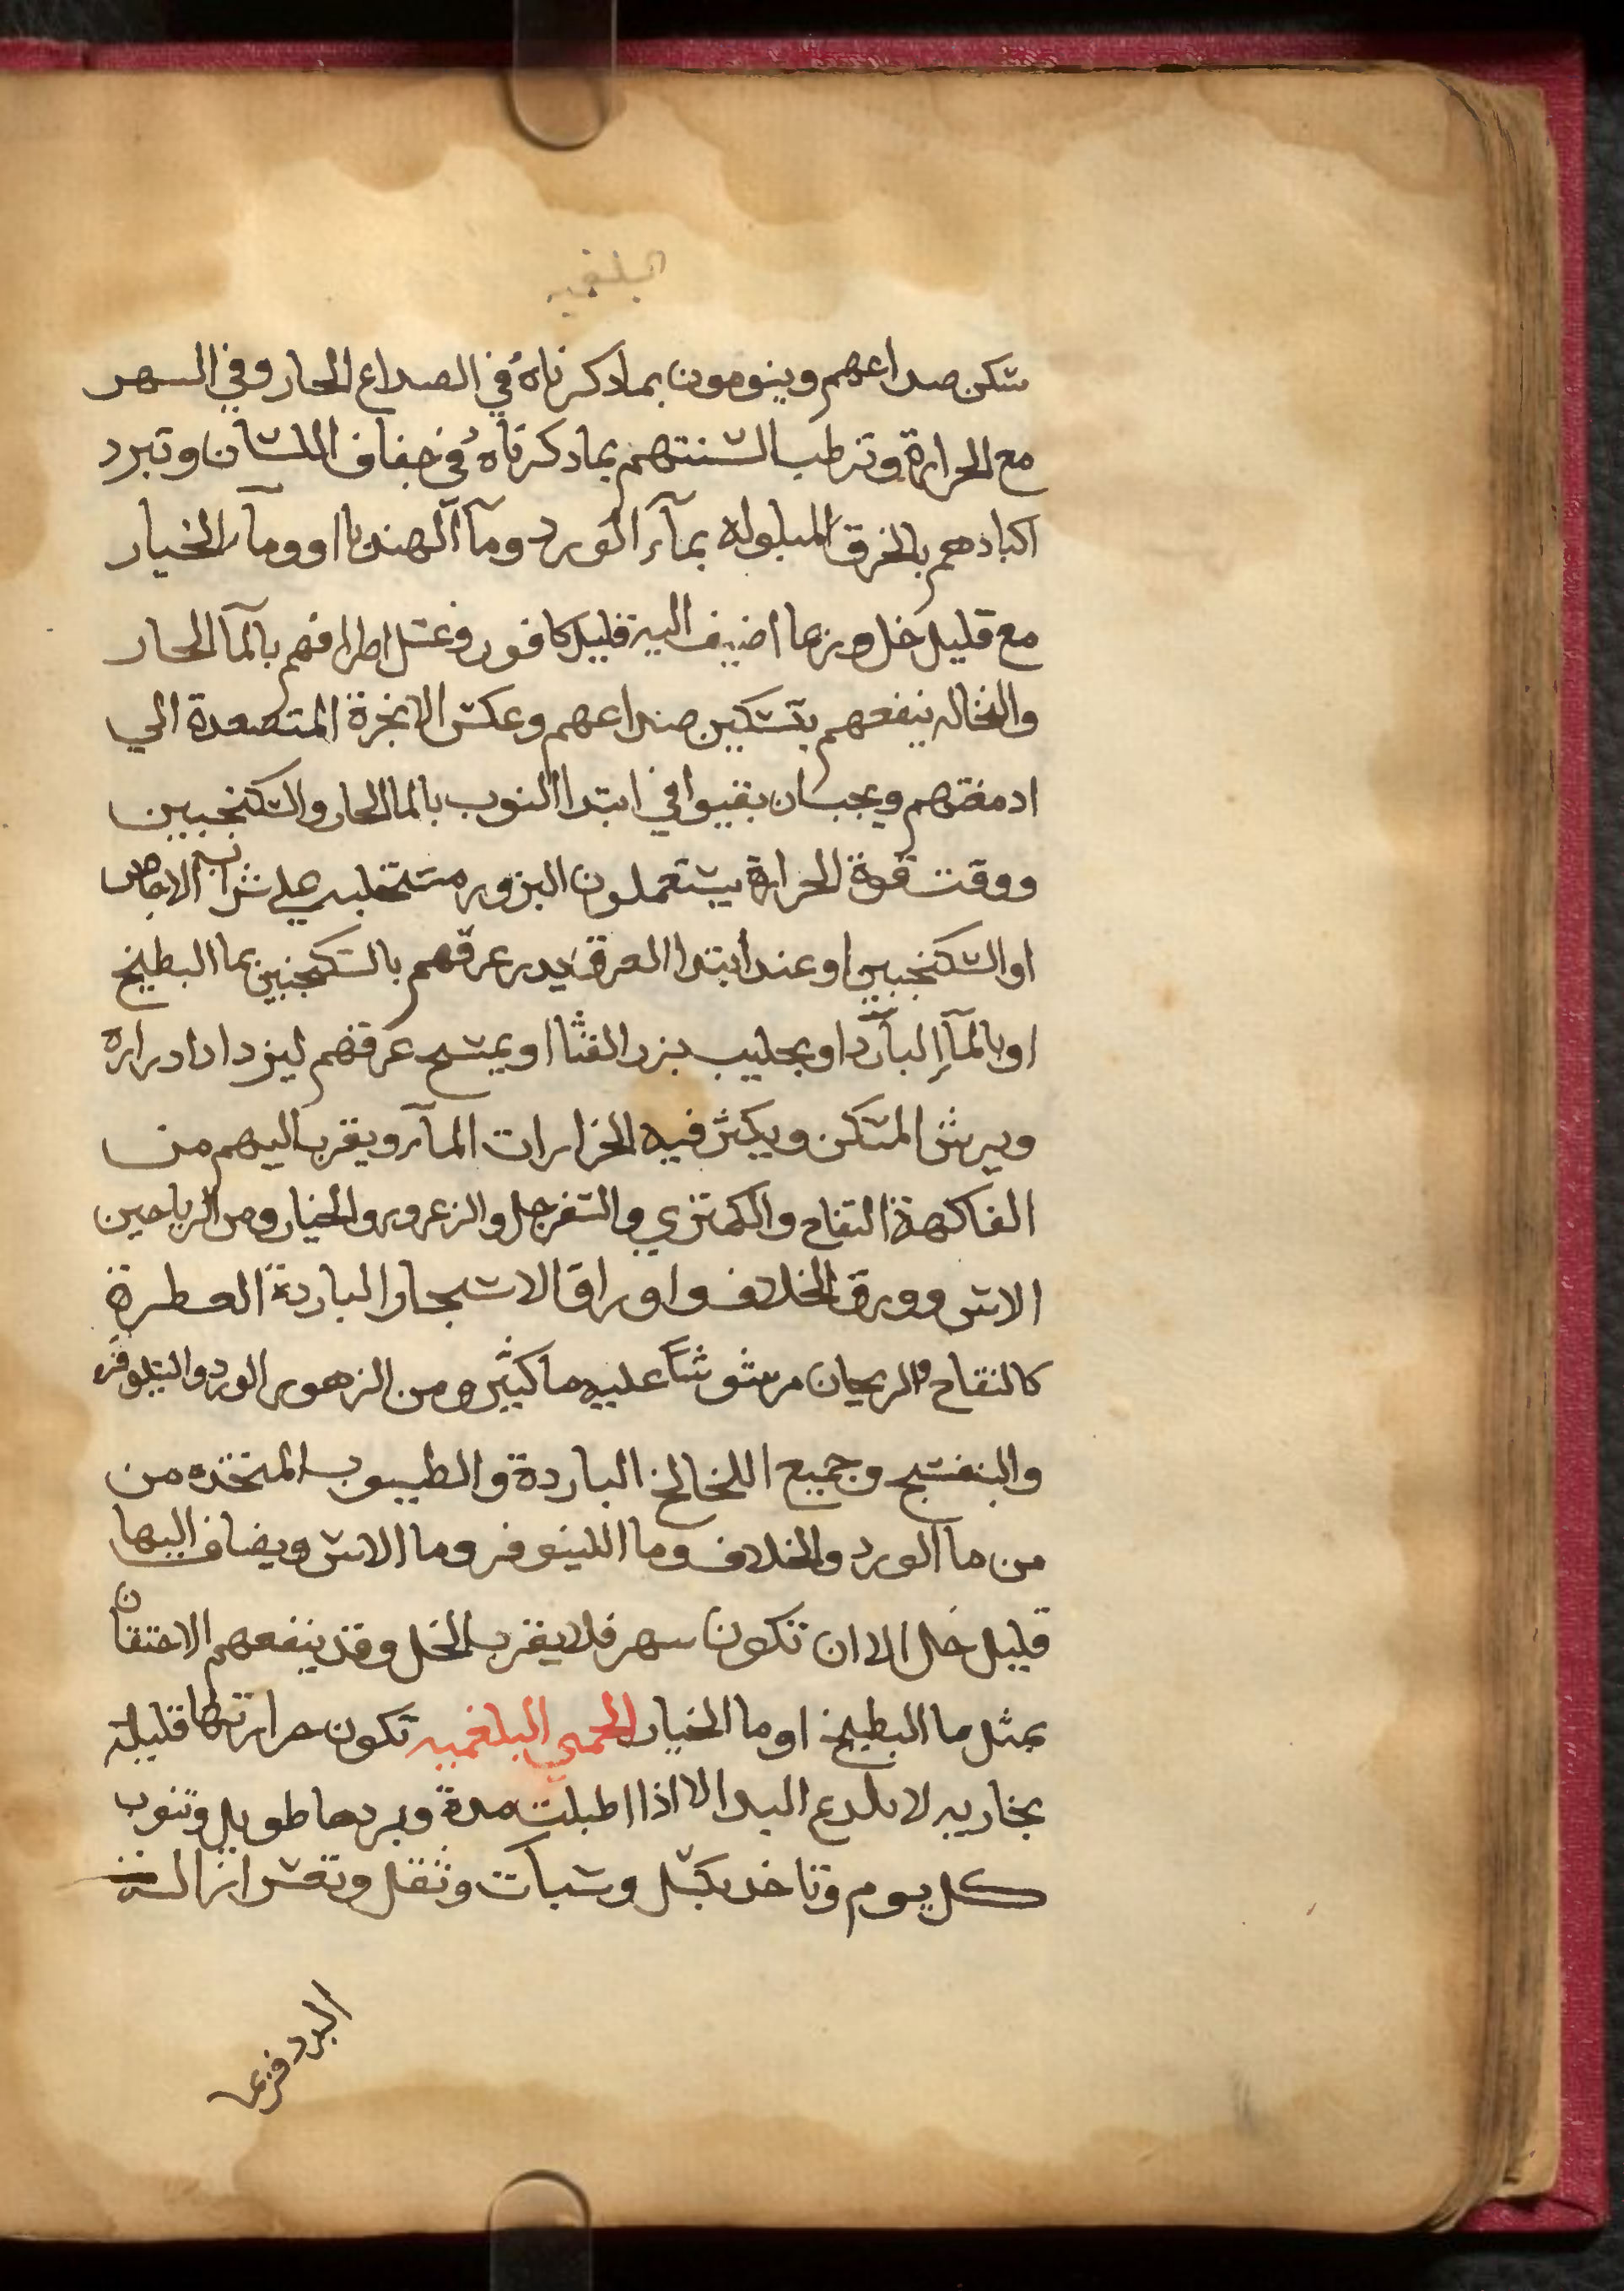 البلغميه
سكن صداعهم وينومون بما دكرناهُ في الصداع الحار وفي السهر
مع الحرارة وترطب السنتهم بما دكرناهُ في جفاف اللسان وتبرد
اكبادهم بالخرق المبلوله بمآء الورد ومآ الهندبا او ومآء الخيار
مع قليل خل وربما اضيف اليه قليل كافور وغسل اطرافهم بالمآ الحار
والنخاله ينفعهم بتسكين صداعهم وعكس الابخرة المتصعدة الي
ادمغتهم ويجب ان يقيوا في ابتدا النوب بالما الحار والسكنجبين
ووقت قوة الحرارة يستعملون البزور مستحلبه علي شراب الاجاص
او السكنجبين او عند ابتدا العرق يدر عرقهم بالسكنجبين بما البطيخ
او بالمآء البارد او بحليب بزر القثا او يمسح عرقهم ليزداد ادراره
ويرش المسكن ويكثر فيه الخرارات المآء ويقرب اليهم من
الفاكهة التفاح والكمثري والسفرجل والزعرور والخيار ومن الرياحين
الاس وورق الخلاف واوراق الاشجار الباردة العطرة
كالتفاح والريحان مرشوشاً عليه ما كثير ومن الزهور الورد والنيلوفر
والبنفسج وجميع اللخالخ الباردة والطيوب المتخده من
من ما الورد والخلاف وما اللينوفر وما الاس ويضاف اليها
قليل خل الا ان تكون سهر فلا يقرب الخل وقد ينفعهم الاحتقان
بمثل ما البطيخ او ما الخيار الحمي البلغميه تكون حرارتها قليلة
بخاريه لا تلدع اليد الا اذا اطيلت مدة وبردها طويل وتنوب
كل يوم وتاخد بكسل وسبات وثقل وتقس از
البرد فربما